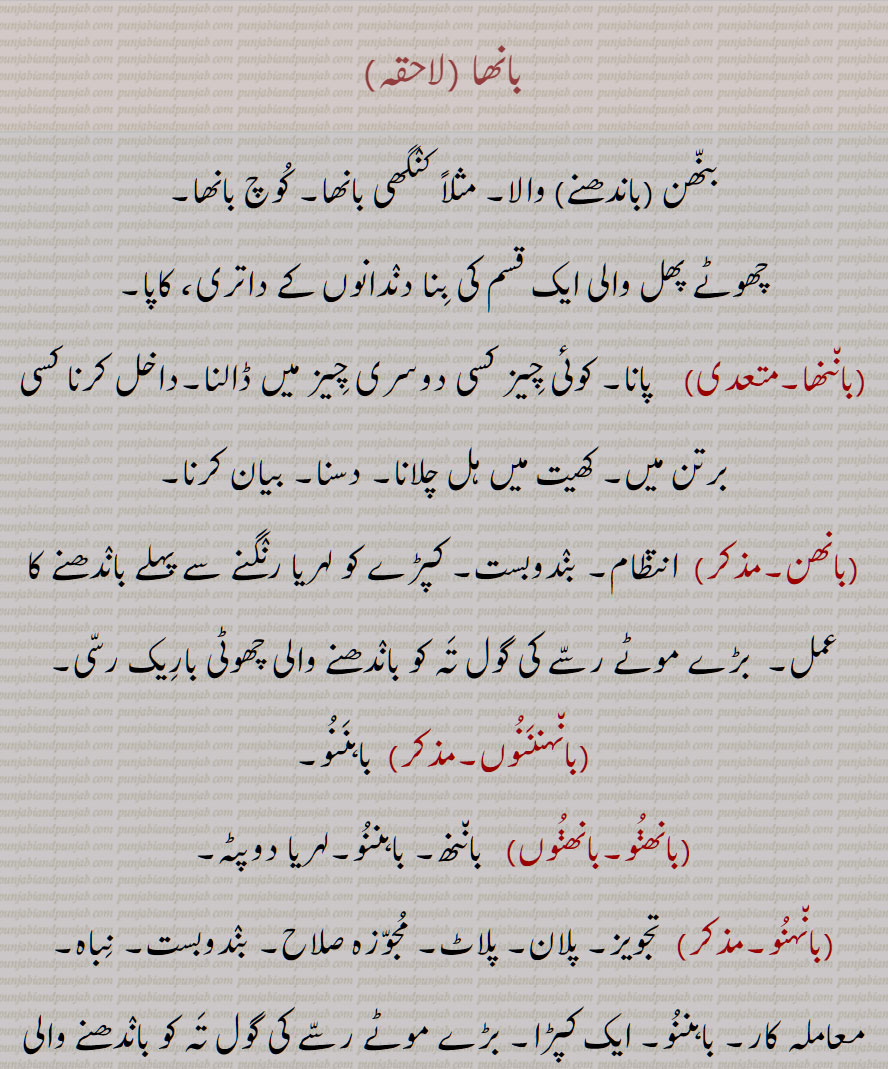 بانھا (لاحقہ)
بنّھن (باندھنے) والا۔ مثلاً کنْگھی بانھا۔ کُوچ بانھا۔
چھوٹے پھل والی ایک قسم کی بِنا دنْدانوں کے داتری، کاپا۔
(بانّنھا۔متعدی) پانا۔ کوئی چِیز کسی دوسری چِیز میں ڈالنا۔داخل کرنا کسی
برتن میں۔ کھیت میں ہل چلانا۔ دسنا۔ بیان کرنا۔
(بانھن۔مذکر) انتظام۔ بنْدوبست۔ کپڑے کو لہریا رنْگنے سے پہلے بانْدھنے کا
عمل۔ بڑے موٹے رسّے کی گول تَہ کو بانْدھنے والی چھوٹی بارِیک رسّی۔
(بانّہننَنُوں۔مذکر) باہنَنُو۔
(بانھنُو۔بانھنُوں) بانّنھ۔ باہننُو۔لہریا دوپٹہ۔
(بانّہنُو۔مذکر) تجویز۔ پلان۔ پلاٹ۔ مُجوّزہ صلاح۔ بنْدوبست۔ نِباہ۔
معاملہ کار۔ باہننُو۔ ایک کپڑا۔ بڑے موٹے رسّے کی گول تَہ کو بانْدھنے والی